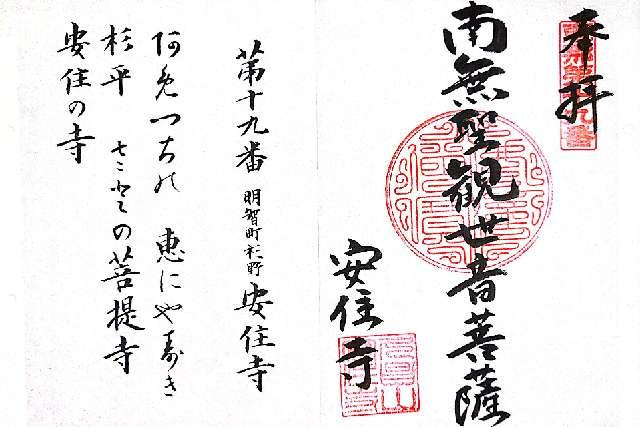 奉拝
南無聖観世音菩薩
安住寺
第十九番 明智町杉野 安住寺
阿免つちの 恵にや寿き
杉平 さとの菩提寺
安住の寺